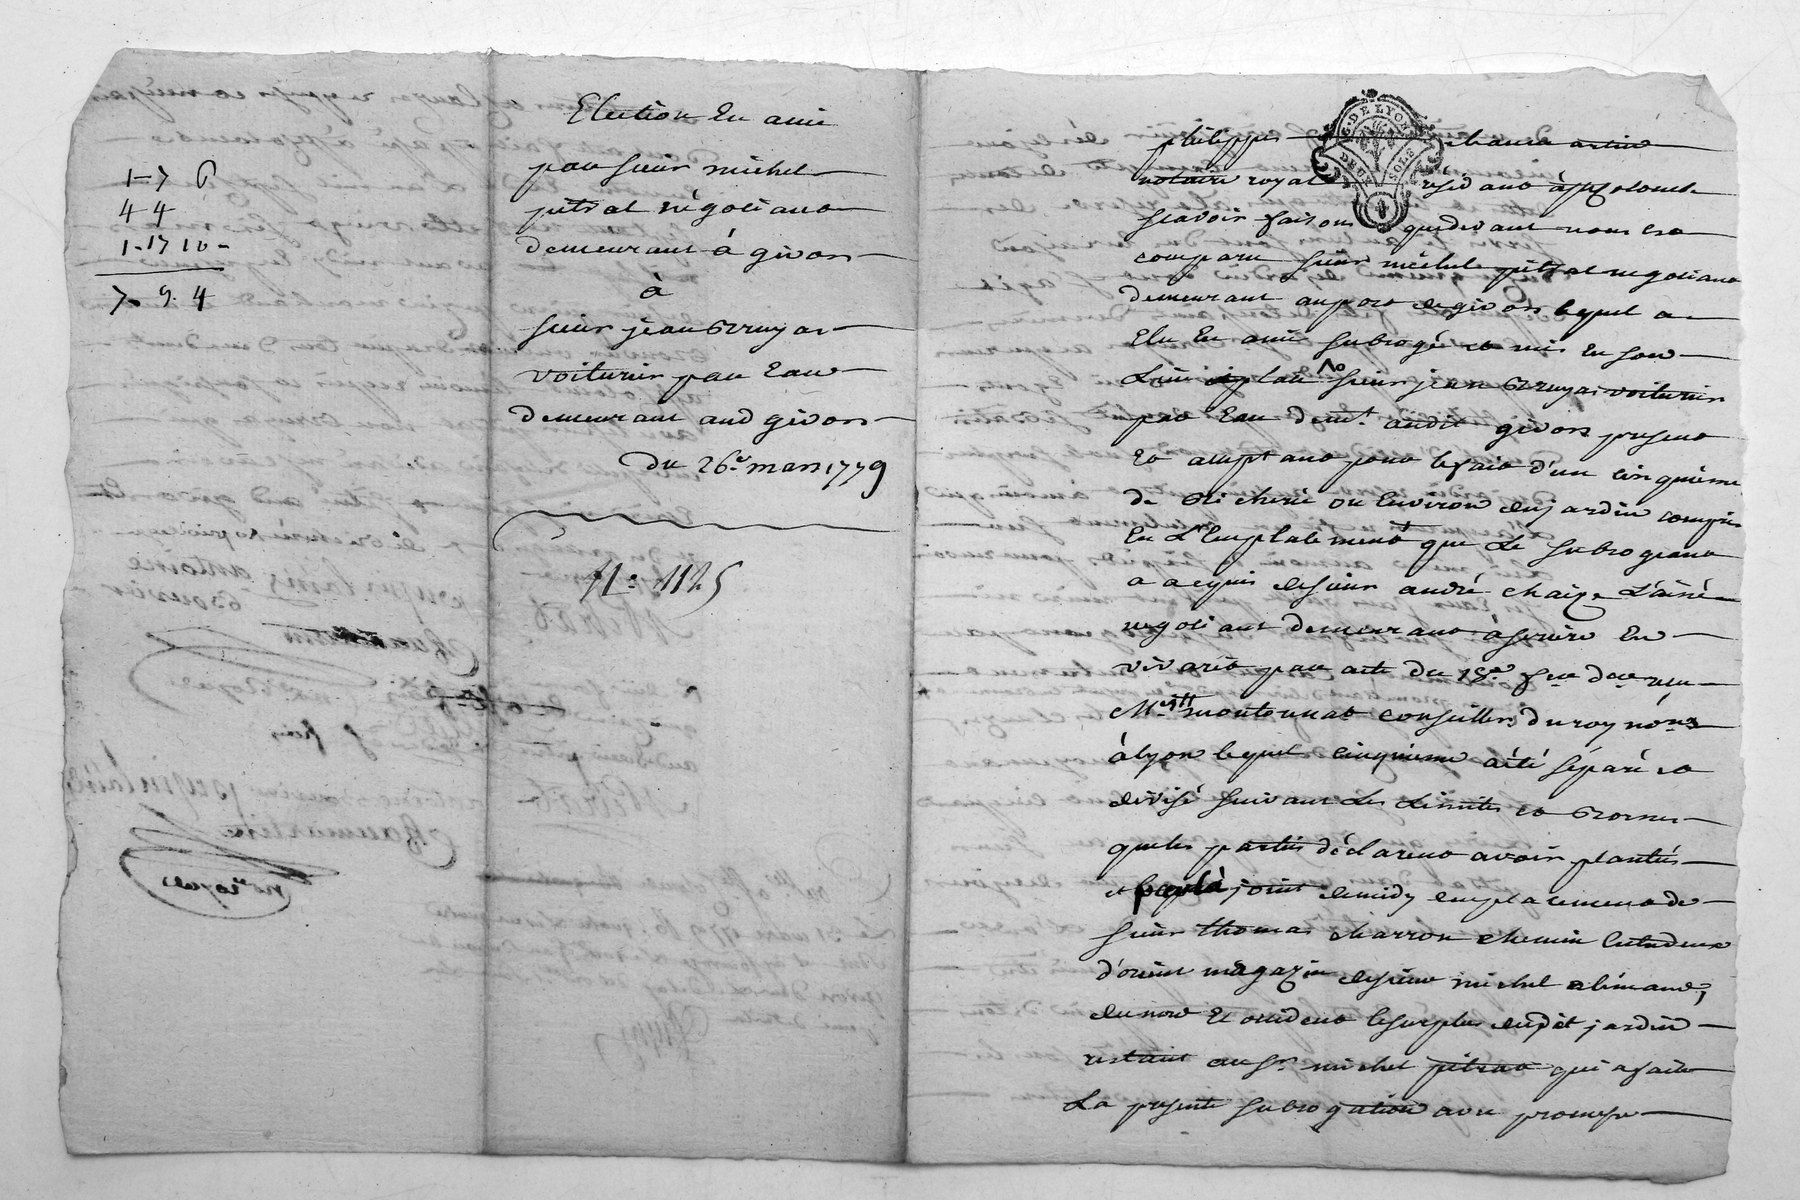 1-7 6
4 4
1-17 10-
7. 9. 4
Election En amie
par sieur michel
pitrat négotiant
demeurant à givors
à
sieur jean Bruyas
voiturier par Eau
demeurant aud givors
du 26e mars 1779
N: 1125
philippes chaumartin
G. DE LYON
DEUX SOLS
notaire royal résidant à
sçavoir faisons que devant nous est
comparu sieur michel pitrat negotiant
demeurant au port de givors lequel a
Elu En amie subrogé et mis En son
Lieu et place sieur jean Bruyas voiturier
par Eau demt. audit givors present
Et acceptant pour le fait d'un cinquième
de Bicherée ou Environ de jardin compris
En L'Emplacement que le subrogeant
a acquis de sieur andré chaize L'ainé
negotiant demeurant à serriere En
vivarés par acte du 15e
Me montermat conseiller du roy
à lyon lequel cinquieme a été séparé et
divisé suivant Les Limites et Bornes
que les parties déclarent avoir plantés
et joint de midy Emplacement de
sieur thomas charron chemin Entredeux
d'orient magazin de sieur michel alimand,
du nord Et occident le surplus dudt jardin
restant au Sr. michel pitrat qui a fait
La presente subrogation avec promesse